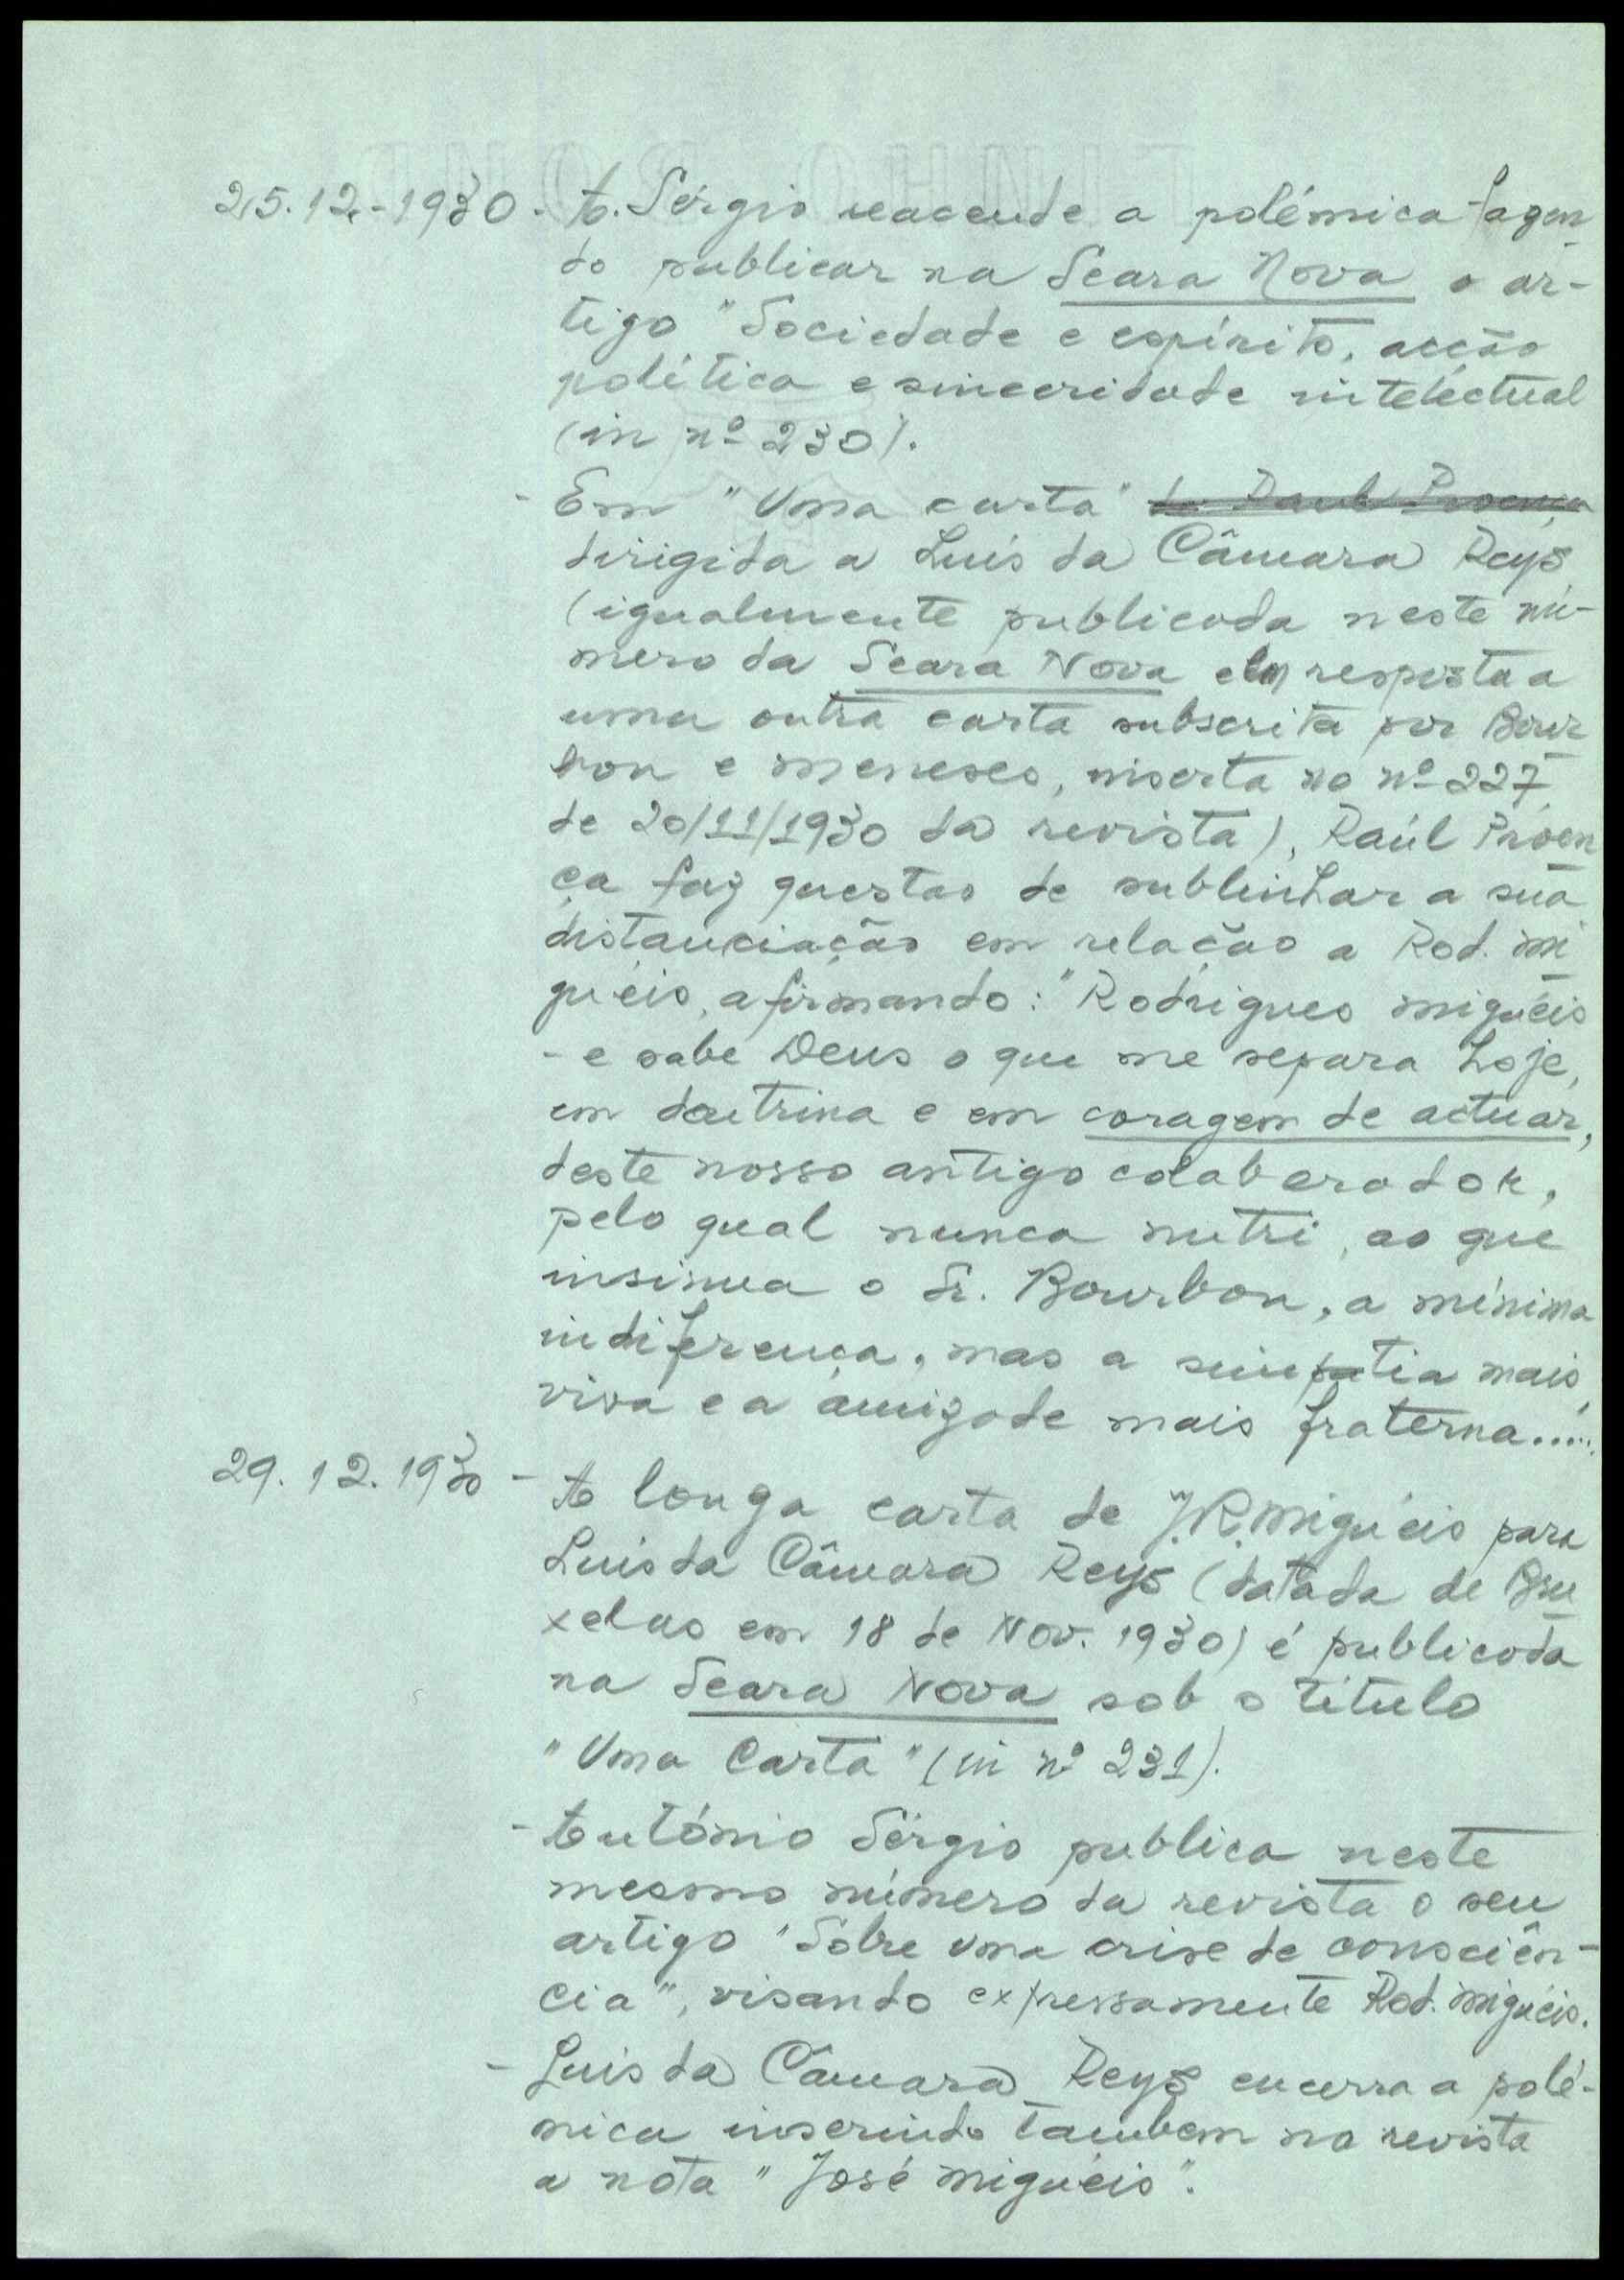 25.12.-1930 - A. Sérgio reacende a polémica fazen
do publicar na Seara Nova o ar-
tigo "Sociedade e espírito, acção
política e sinceridade intelectual
(in nº 230).
- Em "Uma carta" de Raul Proença
dirigida a Luís da Câmara Reys
(igualmente publicada neste nú-
mero da Seara Nova em resposta a
uma outra carta subscrita por Bour
bon e Meneses, inserta no nº 227,
de 20/11/1930 da revista), Raúl Proen
ça faz questão de sublinhar a sua
distanciação em relação a Rod. Mi
guéis, afirmando: "Rodrigues Miguéis
- e sabe Deus o que me separa hoje,
em doutrina e em coragem de actuar,
deste nosso antigo colaborador,
pelo qual nunca nutri, ao que
insinua o Sr. Bourbon, a mínima
indiferença, mas a simpatia mais
viva e a amizade mais fraterna....".
29.12.1930 - A longa carta de J.R. Miguéis para
Luís da Câmara Reys (datada de Bru
xelas em 18 de Nov. 1930) é publicada
na Seara Nova sob o título
"Uma Carta" (in nº 231).
- António Sérgio publica neste
mesmo número da revista o seu
artigo "Sôbre uma crise de consciên-
cia", visando expressamente Rod. Miguéis.
- Luís da Câmara Reys encerra a polé-
mica inserindo também na revista
a nota "José Miguéis".